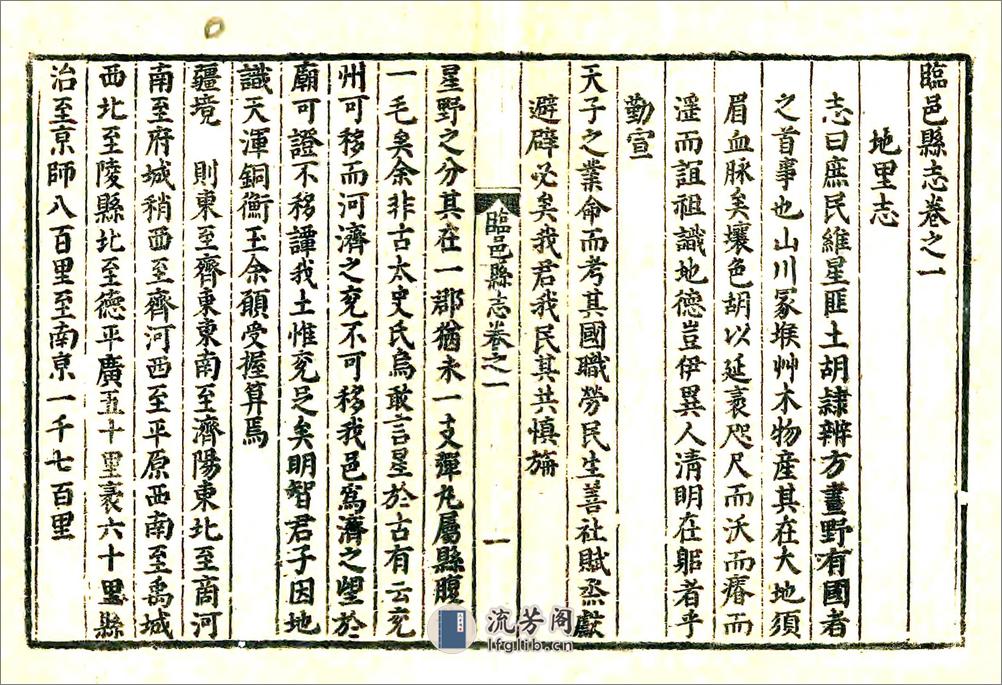 臨邑縣志卷之一
地里志
志曰庶民維星匪土胡隸辨方畫野有國者
之首事也山川冢堠艸木物產其在大地須
眉血脉矣壤色胡以延袤咫尺而沃而瘠而
溼而誼祖識地德豈伊異人清明在躬者乎
勤宣
天子之業命而考其國職勞民生善社賦烝獻
避辟必矣我君我民其共慎旃
臨邑縣志卷之一
一
星野之分其在一郡猶未一支彈丸屬縣腹
一毛矣余非古太史氏烏敢言星於古有云兖
州可移而河濟之兖不可移我邑寫濟之壄於
廟可證不移譚我土惟兖足矣明智君子因地
識天渾銅衡玉余願受握算焉
疆境 則東至齊東東南至濟陽東北至商河
南至府城稍西至齊河西至平原西南至禹城
西北至陵縣北至德平廣五十里袤六十里縣
治至京師八百里至南京一千七百里
流芳阁
lfglib.cn